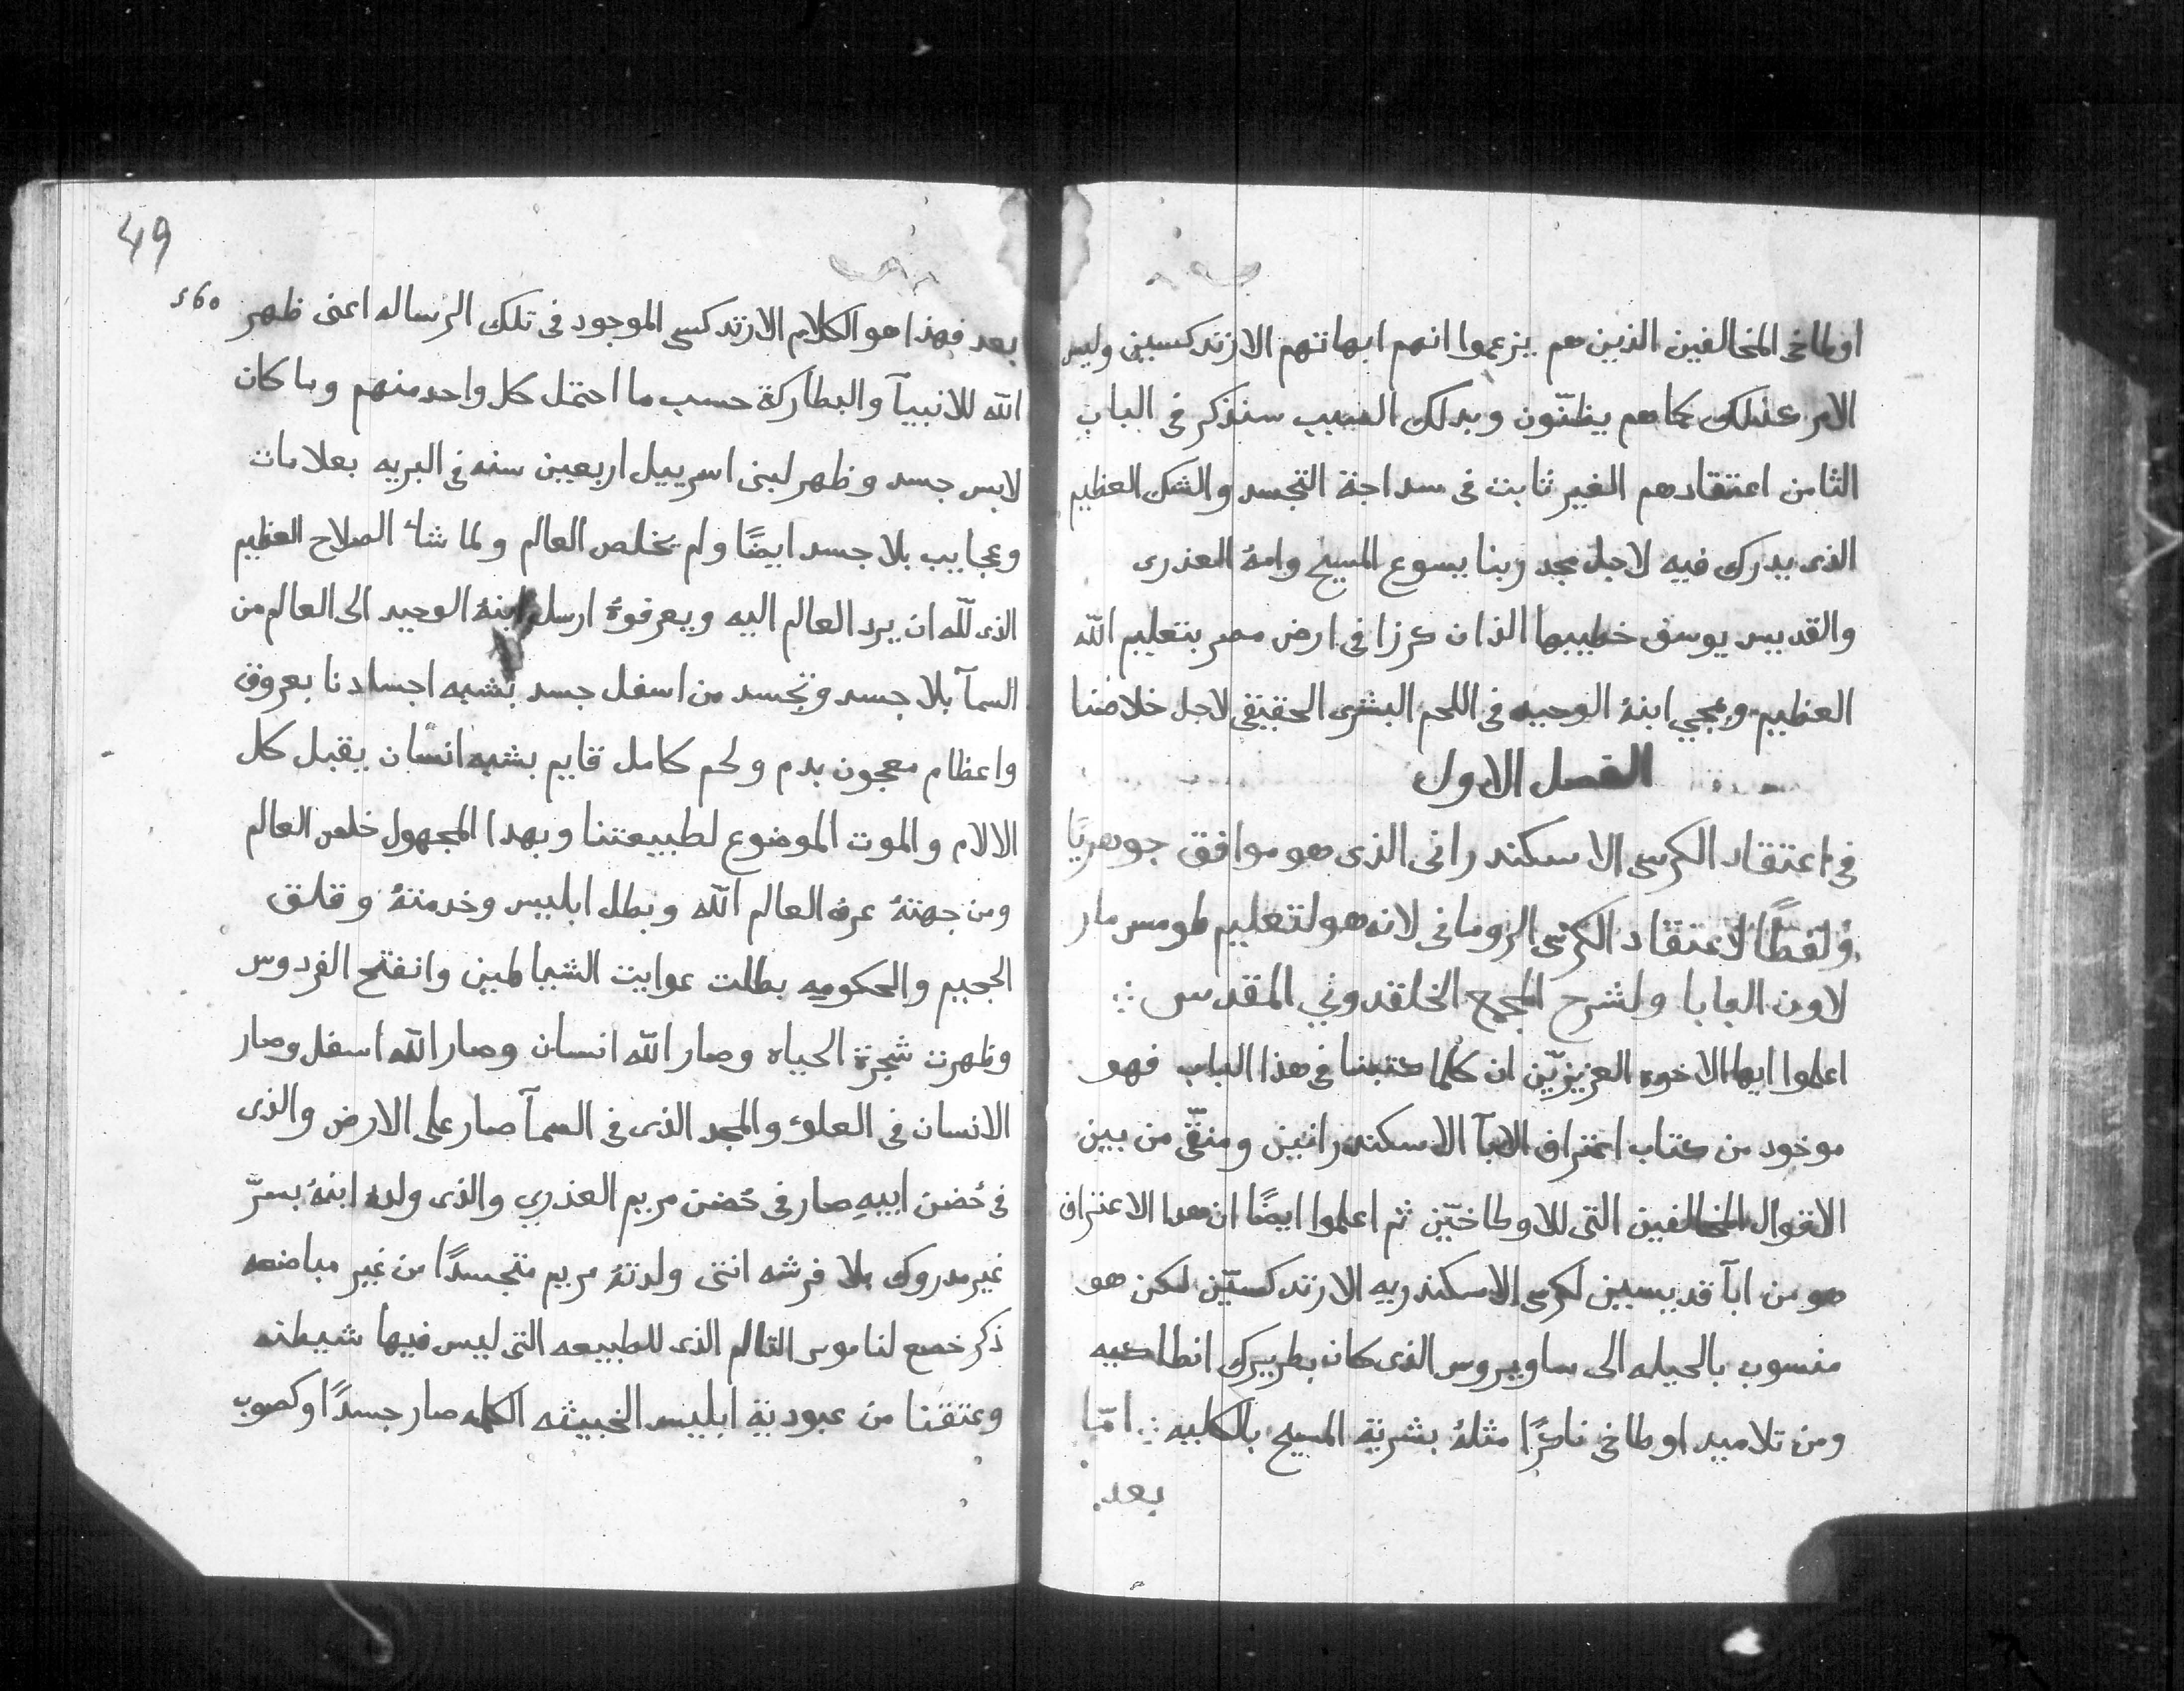 اوطاخى المخالفين الذين هم يزعموا انهم ابهاتهم الارتدكسيين وليس
الامر كذلك كما هم يظنّون وبدلك السبب سنذكر فى الباب
الثامن اعتقادهم الغير ثابت فى سداجة التجسد والشك العظيم
الذى يدرك فيه لاجل مجد ربنا يسوع المسيح وامهُ العذرى
والقديس يوسف خطيبها الذان كرزا فى ارض مصر بتعليم اللّه
العظيم وبمجي ابنهُ الوحيد فى اللحم البشرى الحقيقى لاجل خلاصنا
الفصل الاول
فى اعتقاد الكرسى الاسكندرانى الذى هو موافق جوهريًا
ولفظًا لاعتقاد الكرسى الرومانى لانه هو لتعليم طومس مار
لاون البابا ولشرح المجمع الخلقدوني المقدس ؞
اعلموا ايها الاخوه العزيزيّن ان كلما كتبنا فى هذا الباب فهو
موخود من كتاب اعتراف الابآ الاسكندرانيين ومنقّى من بين
الاقوال المخالفين التى للاوطاخيّين ثم اعلموا ايضًا ان هدا الاعتراف
هو من ابآ قديسيين لكرسى الاسكندريه الارتدكسيّين لكن هو
منسوب بالحيله الى ساويروس الذى كان بطريرك انطاكيه
ومن تلاميد اوطاخى ناكرًا مثلهُ بشرية المسيح بالكليه ؞ امّا
بعد
49
560
بعد فهذا هو الكلام الارتدكسى الموجود فى تلك الرساله اعنى ظهر
اللّه للانبيآ والبطاركة حسب ما احتمل كل واحد منهم وما كان
لابس جسد وظهر لبنى اسرييل اربعين سنه فى البريه بعلامات
وعجايب بلا جسد ايضًا ولم يخلص العالم ولما شاء الصلاح العظيم
الذى للّه ان يرد العالم اليه ويعرفوهُ ارسل ابنهُ الوحيد الى العالم من
السمآ بلا جسد وتجسد من اسفل جسد بشبه اجسادنا بعروق
واعظام معجون بدم ولحم كامل قايم بشبه انسان يقبل كل
الالام والموت الموضوع لطبيعتنا وبهدا المجهول خلص العالم
ومن جهتهُ عرف العالم اللّه وبطل ابليس وخدمتهُ وقلق
الجحيم والحكوميه بطلت عوايت الشياطين وانفتح الفردوس
وظهرت شجرة الحياه وصار اللّه انسان وصار اللّه اسفل وصار
الانسان فى العلو والمجد الذى فى السمآ صار على الارض والذى
فى حُضن ابيهِ صار فى حُضن مريم العذري والذى ولدهُ ابنهُ بسرّ
غير مدروك بلا فرشه انتى ولدتهُ مريم متجسدًا من غير مباضعه
ذكر خضع لناموس التالم الذى للطبيعه التى ليس فيها شيطنه
وعتقنا من عبودية ابليس الخبيثه الكلمه صار جسدًا وكصوب